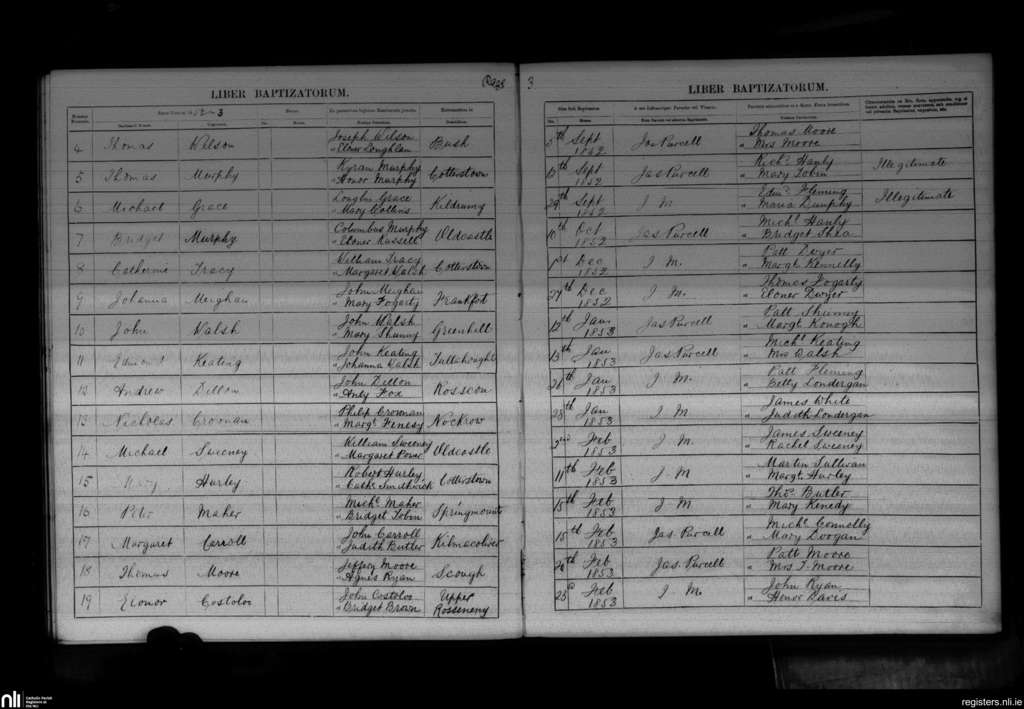 Page 3
LIBER BAPTIZATORUM.
1852-3
4 Thomas Wilson Joseph Wilson Bush
" Elonor Loughlan
5 Thomas Murphy Kyran Murphy Cotterstown
" Honor Murphy
6 Michael Grace Grace Kildrummy
" Mary Collins
7 Bridget Murphy Columbus Murphy Oldcastle
" Elonor Russell
8 Catherine Tracy William Tracy Cotterstown
" Margaret Walsh
9 Johanna Meighan John Meighan Frankfort
" Mary Fogarty
10 John Walsh John Walsh Greenhill
" Mary Shunny
11 Edmond Keating John Keating
" Johanna Walsh
12 Andrew Dillon John Dillon Rosscon
" Anty Fox
13 Nicholas Crownan Philip Crownan Nockrow
" Margt Henesy
14 Michael Sweeney William Sweeney Oldcastle
" Margaret Power
15 Mary Hurley Robert Hurley Cotterstown
" Cathe Smithwick
16 Peter Maher Michl Maher Springmount
" Bridget Tobin
17 Margaret Carroll John Carroll Kilmacoliver
" Judith Butler
18 Thomas Moore Jeffery Moore Scough
" Agnes Ryan
19 Elonor Costolos John Costolos Upper
" Bridget Brown Rosseneny
LIBER BAPTIZATORUM.
5th Sept Jas Purcell Thomas Moore
1852 " Mrs Moore
Sept Jas Purcell Richd Hanly Illegitimate
1852 " Mary Tobin
29th Sept J M. Edmd Fleming Illegitimate
1852 " Maria Dunphy
10th Oct Jas Purcell Michl Hanly
1852 " Bridget Shea
1st Dec J M. Patt Dwyer
1852 " Margt Kennelly
27th Dec J M. Thomas Fogarty
1852 " Elonor Dwyer
12th Jan Jas Purcell Patt Shunny
1853 " Margt Konogh
13th Jan Jas Purcell Michl Keating
1853 " Mrs Walsh
21th Jan J M. Patt Fleming
1853 " Betty Londergan
28th Jan J M James White
1853 " Judith Londergan
2nd Feb J M. James Sweeney
1853 " Rachel Sweeney
11th Feb J M Martin Sullivan
1853 " Margt Hurley
15th Feb J M Thos Butler
1853 " Mary Kenedy
15th Feb Jas Purcell Michl Connolly
1853 " Mary Doogan
20th Feb Jas Purcell Patt Moore
1853 " Mrs T. Moore
23d Feb J M. John Ryan
1853 " Honor Davis
nli
Catholic Parish
Registers at
the NLI
registers.nli.ie